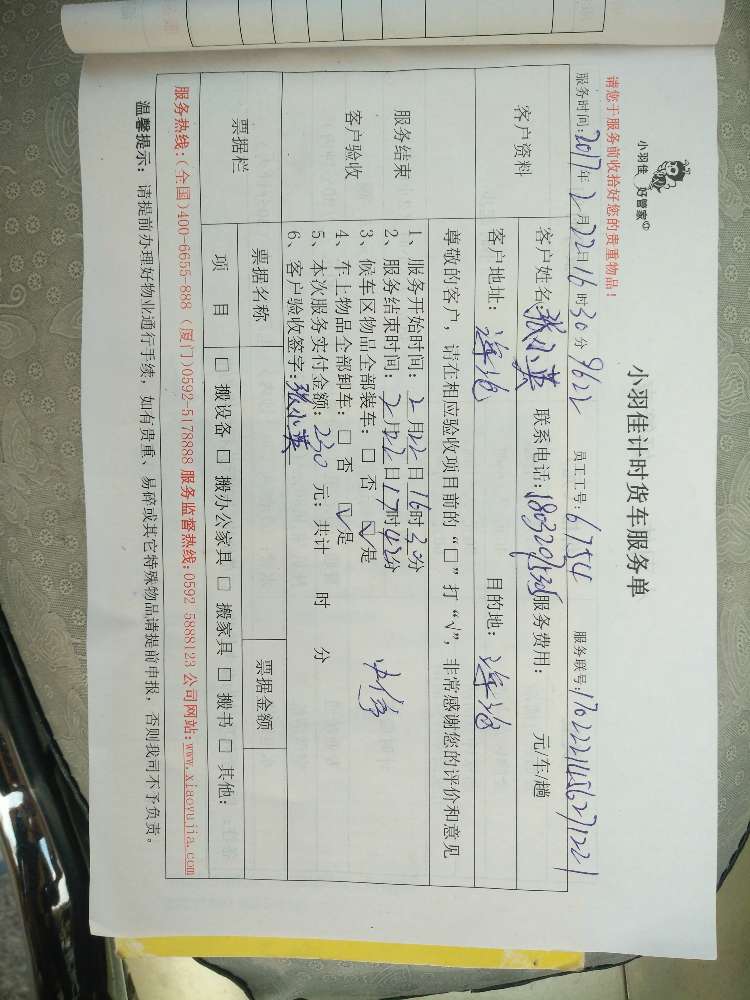 小羽佳 好管家
小羽佳计时货车服务单
请您于服务前收拾好您的贵重物品！
服务时间：2017年2月22日16时30分 9622 员工工号：6754 服务联号：
客户资料
客户姓名：张小英 联系电话： 服务费用： 元/车/趟
客户地址：莲沧 目的地：莲沧
服务结束
客户验收
尊敬的客户，请在相应验收项目前的“□”打“√”，非常感谢您的评价和意见
1、服务开始时间：2月22日16时30分
2、服务结束时间：2月22日17时42分
3、候车区物品全部装车：□ 否 ☑是
4、车上物品全部卸车：□ 否 ☑是
5、本次服务实付金额：230元；共计 时 分
6、客户验收签字：张小英
票据栏
票据名称 票据金额
项 目 □ 搬设备 □ 搬办公家具 □ 搬家具 □ 搬书 □ 其他：
服务热线：(全国)400-6655-888（厦门)0592-5178888 服务监督热线：0592 5888123 公司网站：www.xiaoyujia.com
温馨提示： 请提前办理好物业通行手续，如有贵重、易碎或其它特殊物品请提前申报，否则我司不予负责。